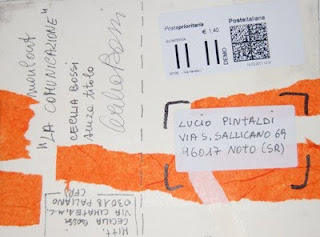 mailart
"LA COMUNICAZIONE"
CECILIA BOSSI
senza titolo
Cecilia Bossi
Posteprioritaria
Posteitaliane
€ 1,40
DEMO
LUCIO PINTALDI
VIA S. SALLICANO 69
96017 NOTO (SR)
MITT.
CECILIA BOSSI
03018 PALIANO
(FR)